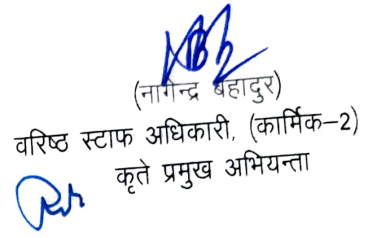 (नागेन्द्र बहादुर)
वरिष्ठ स्टाफ अधिकारी, (कार्मिक-2)
कृते प्रमुख अभियन्ता